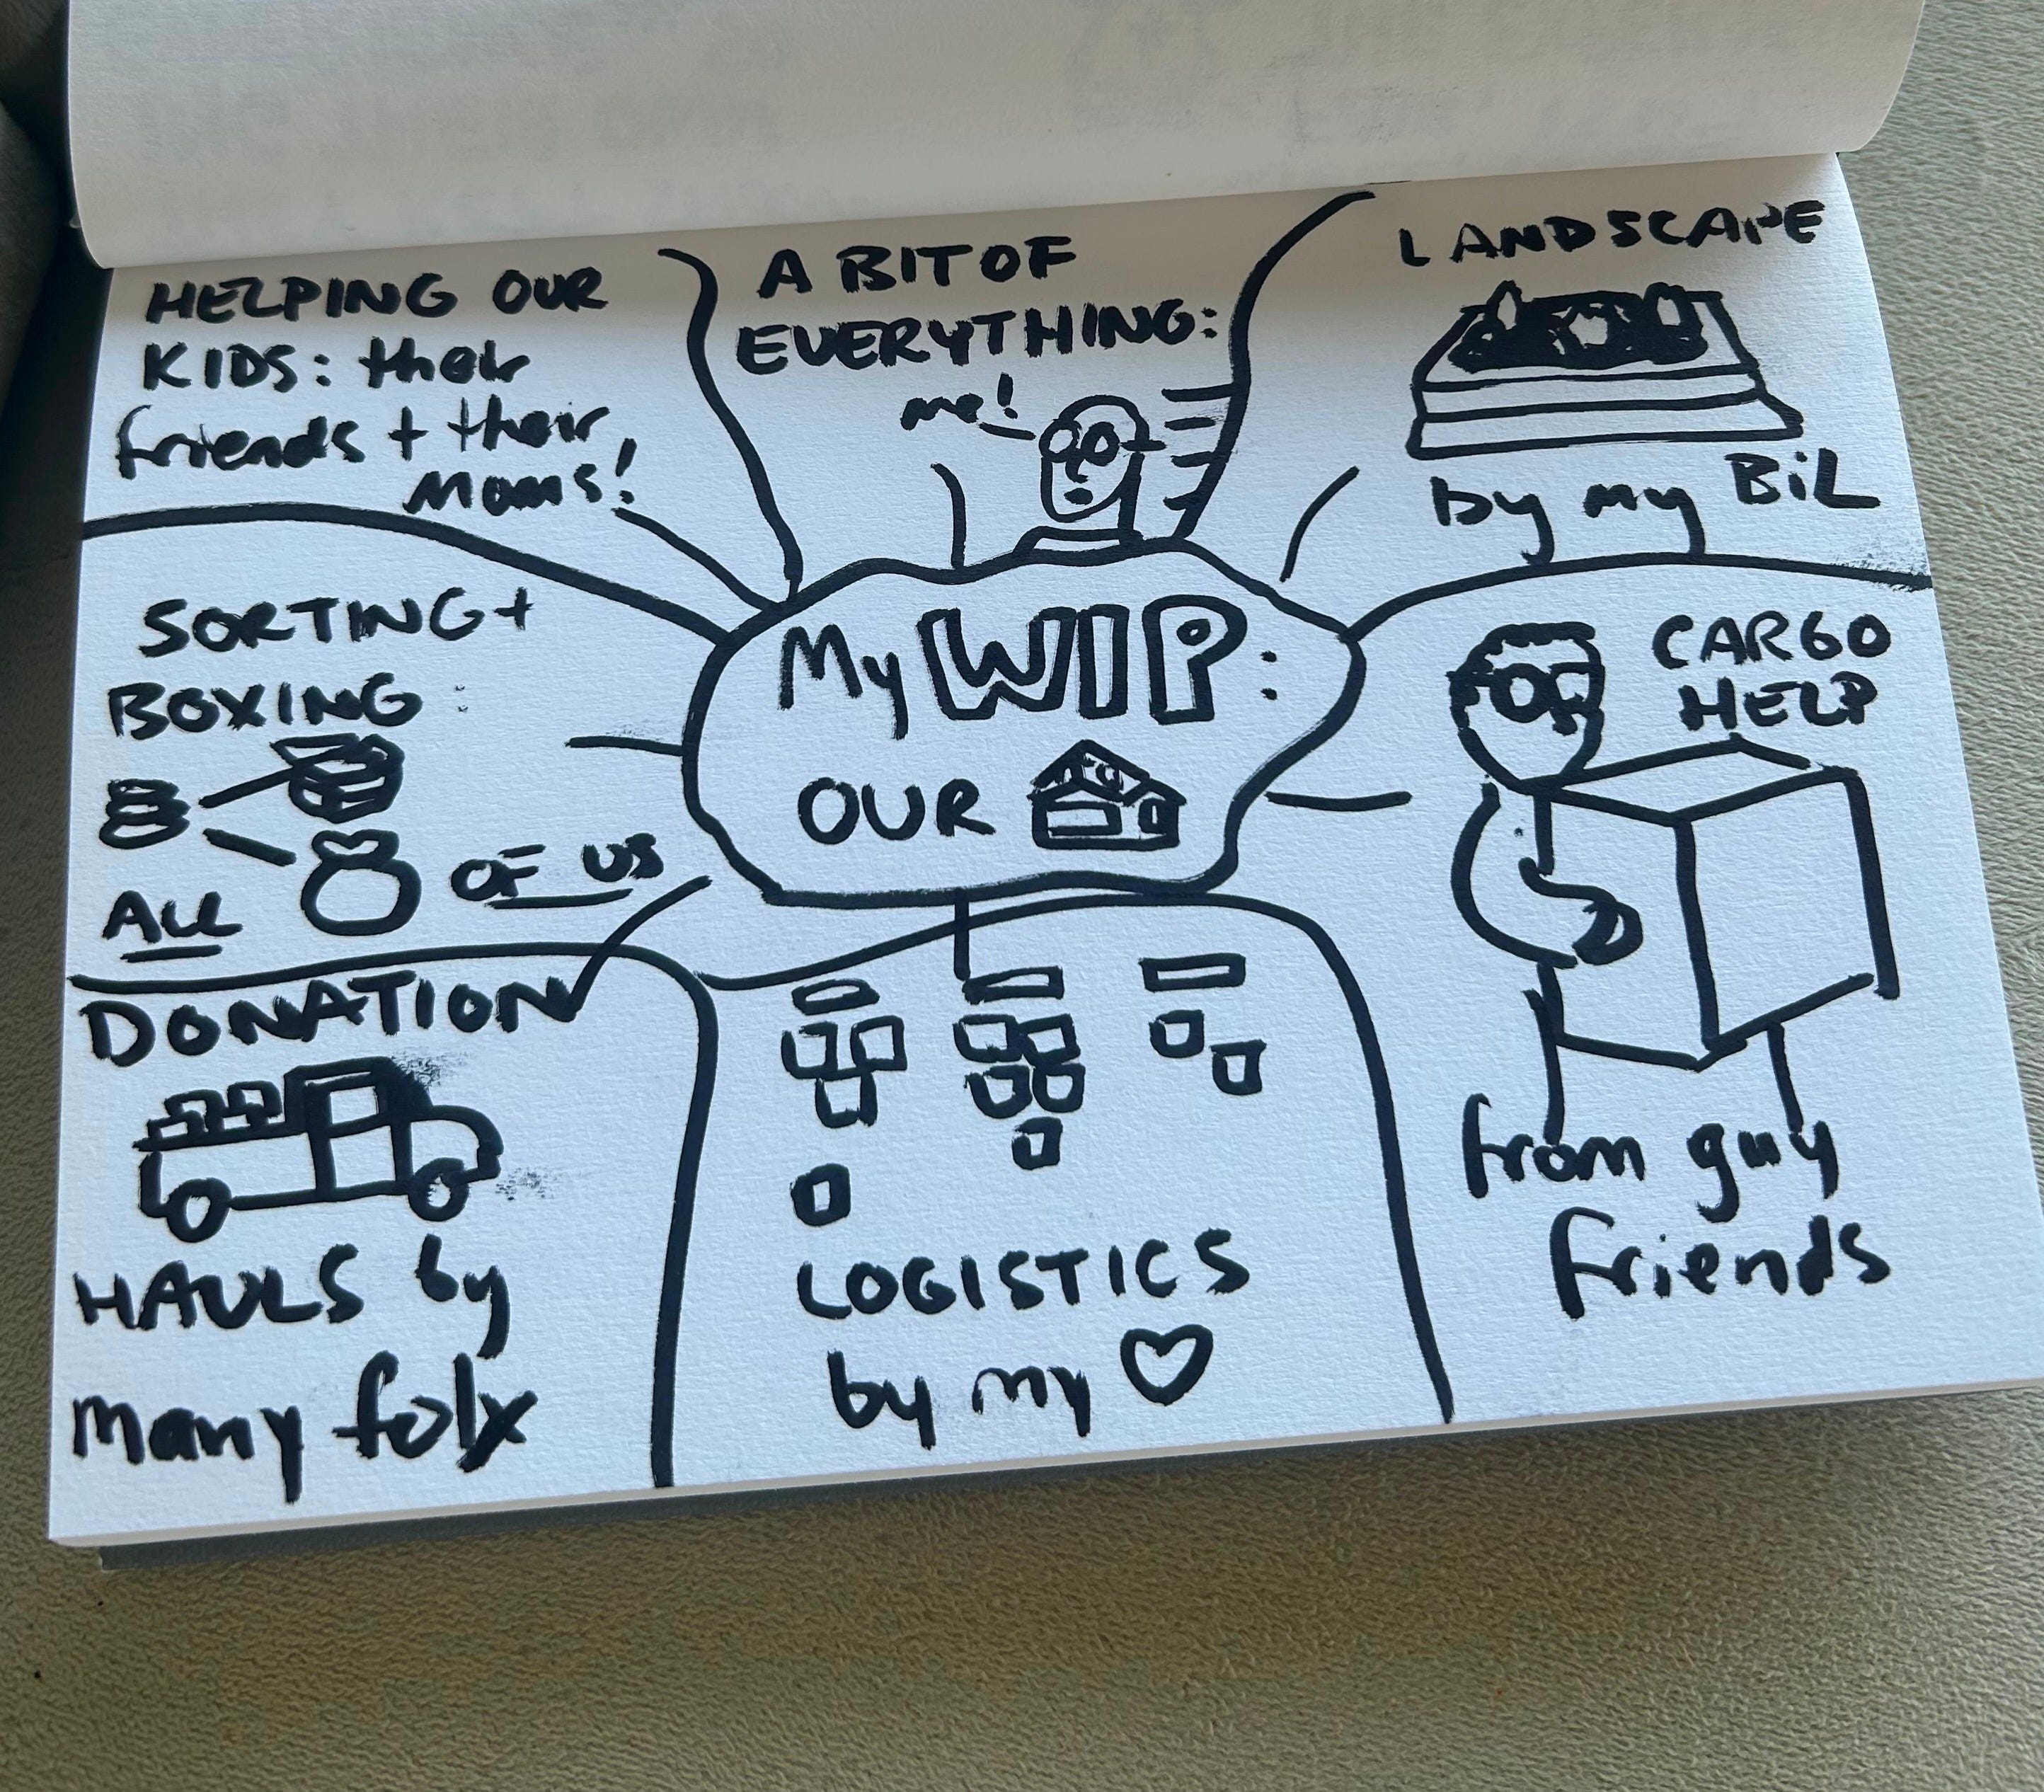 HELPING OUR
KIDS: their
friends + their
Moms!
A BIT OF
EVERYTHING:
me!
LANDSCAPE
by my BiL
SORTING +
BOXING
ALL OF US
My WIP:
OUR
CARGO
HELP
from guy
friends
DONATION
HAULS by
many folx
LOGISTICS
by my